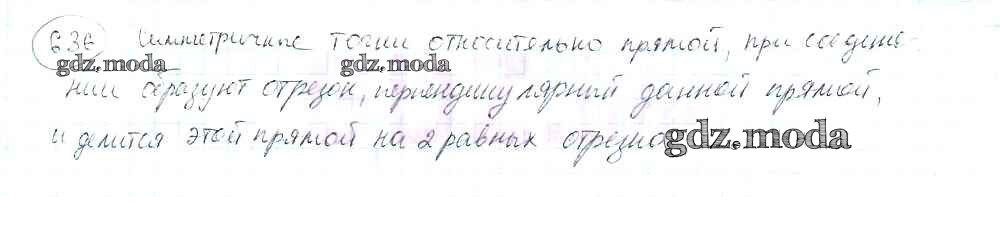 636 Симметричные точки относительно прямой, при соедине-
gdz.moda gdz.moda
нии образуют отрезок, перпендикулярный данной прямой,
и делится этой прямой на 2 равных отрезка gdz.moda